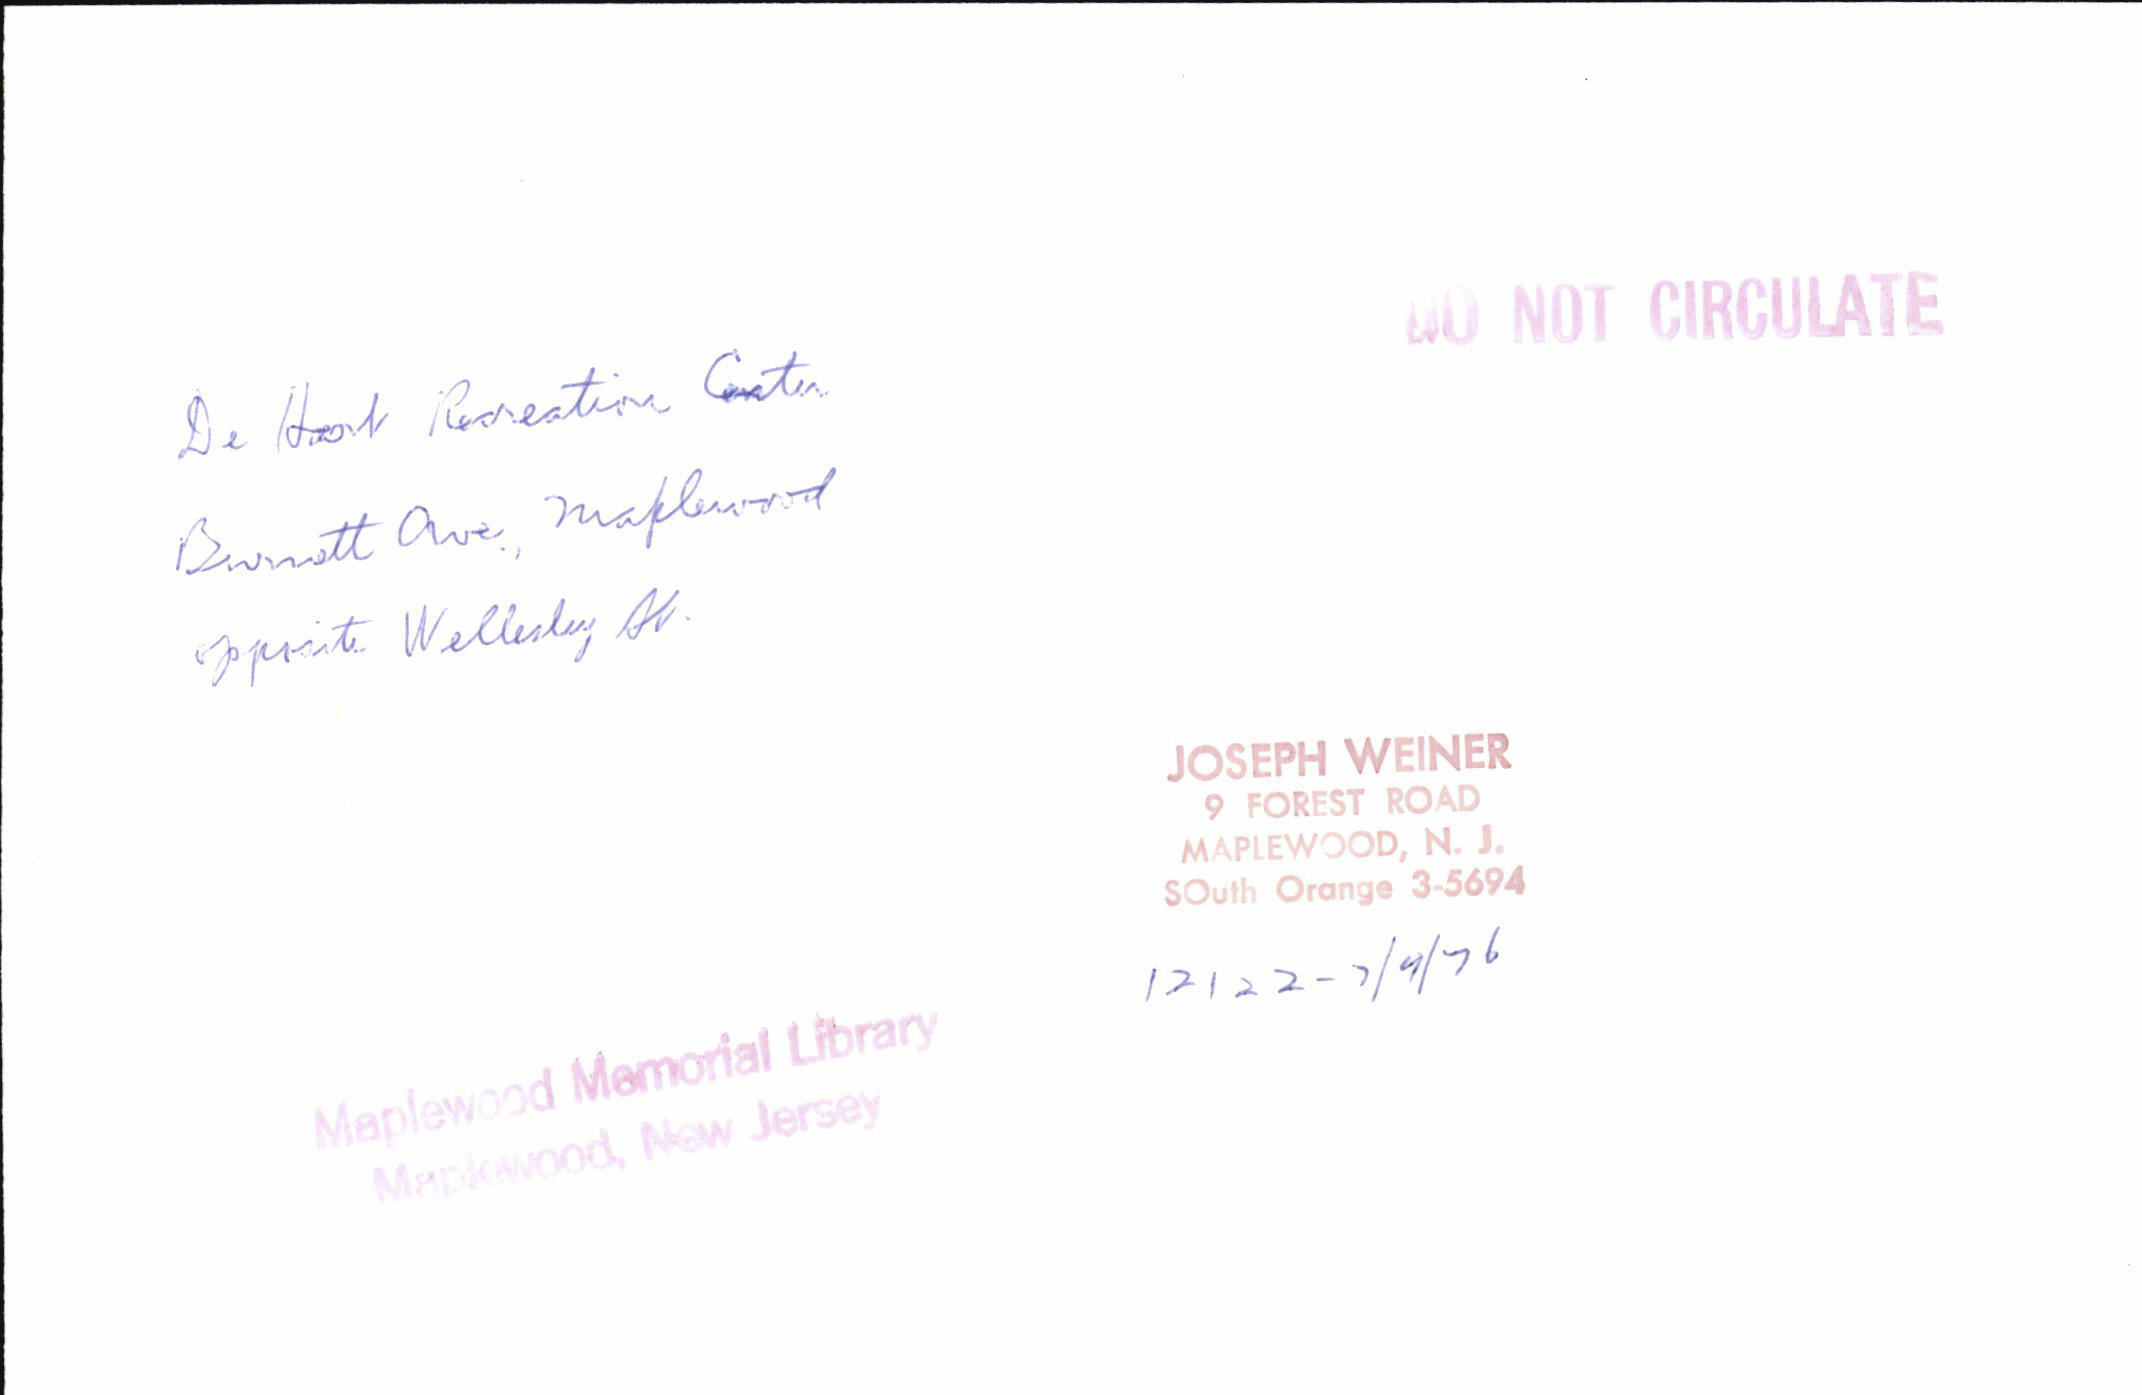 DO NOT CIRCULATE
De Hart Recreation Center
Burnett Ave., Maplewood
opposite Wellesley St.
JOSEPH WEINER
9 FOREST ROAD
MAPLEWOOD, N. J.
SOuth Orange 3-5694
12122-7/9/76
Maplewood Memorial Library
Maplewood, New Jersey